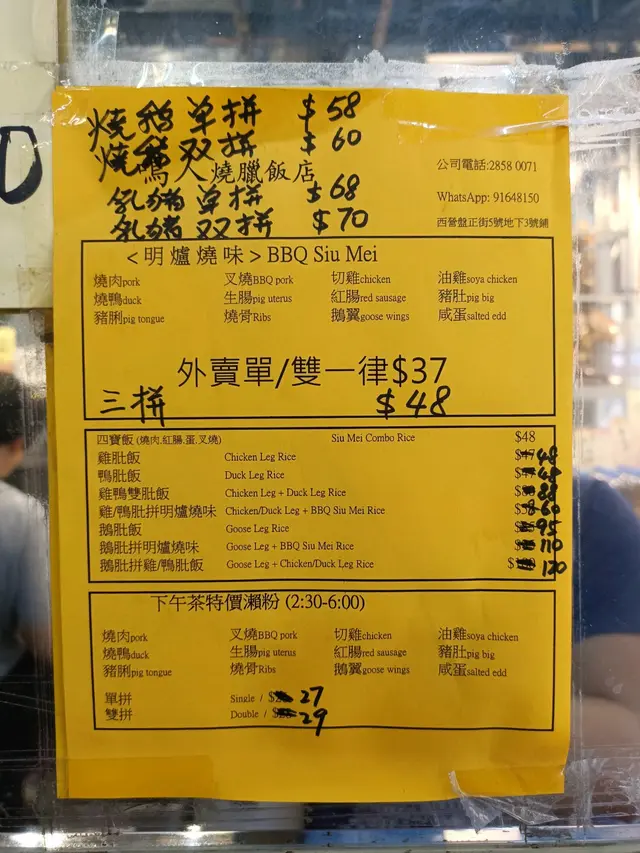 燒鵝单拼 $58
燒鵝双拼 $60
人燒臘飯店
公司電話:2858 0071
乳豬单拼 $68
WhatsApp: 91648150
乳豬双拼 $70
西營盤正街5號地下3號鋪
<明爐燒味> BBQ Siu Mei
燒肉pork 叉燒BBQ pork 切雞chicken 油雞soya chicken
燒鴨duck 生腸pig uterus 紅腸red sausage 豬肚pig big
豬脷pig tongue 燒骨Ribs 鵝翼goose wings 咸蛋salted edd
外賣單/雙一律$37
三拼 $48
四寶飯 (燒肉.紅腸.蛋.叉燒) Siu Mei Combo Rice $48
雞肶飯 Chicken Leg Rice 48
鴨肶飯 Duck Leg Rice 48
雞鴨雙肶飯 Chicken Leg + Duck Leg Rice 88
雞/鴨肶拼明爐燒味 Chicken/Duck Leg + BBQ Siu Mei Rice 60
鵝肶飯 Goose Leg Rice 95
鵝肶拼明爐燒味 Goose Leg + BBQ Siu Mei Rice 110
鵝肶拼雞/鴨肶飯 Goose Leg + Chicken/Duck Leg Rice 120
下午茶特價瀨粉 (2:30-6:00)
燒肉pork 叉燒BBQ pork 切雞chicken 油雞soya chicken
燒鴨duck 生腸pig uterus 紅腸red sausage 豬肚pig big
豬脷pig tongue 燒骨Ribs 鵝翼goose wings 咸蛋salted edd
單拼 Single / $ 27
雙拼 Double / $ 29